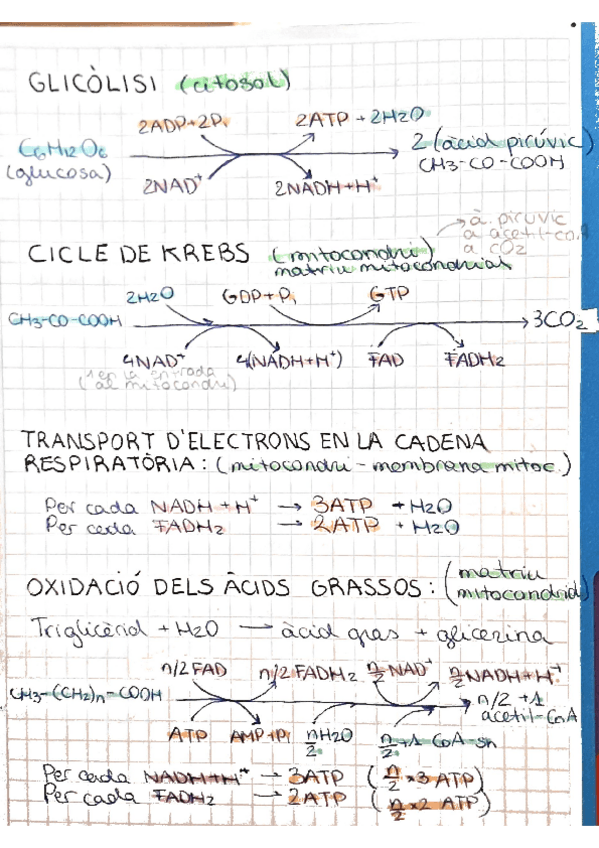 GLICÒLISI (citosol)
2ADP+2Pi 2ATP + 2H2O
C6H12O6 2 (àcid pirúvic)
(glucosa) CH3-CO-COOH
2NAD+ 2NADH+H+
à. pirúvic
a acetil-CoA
a CO2
CICLE DE KREBS (mitocondri)
matriu mitocondrial
2H2O GDP+Pi GTP
CH3-CO-COOH 3CO2
4NAD+ 4(NADH+H+) FAD FADH2
(1 en la entrada
al mitocondri)
TRANSPORT D'ELECTRONS EN LA CADENA
RESPIRATÒRIA: (mitocondri - membrana mitoc.)
Per cada NADH + H+ → 3ATP + H2O
Per cada FADH2 → 2ATP + H2O
OXIDACIÓ DELS ÀCIDS GRASSOS: (matriu
mitocondrial)
Triglicèrid + H2O → àcid gras + glicerina
n/2 FAD n/2 FADH2 n/2 NAD+ n/2 NADH+H+
CH3-(CH2)n-COOH n/2 +1
acetil-CoA
ATP AMP+Pi n/2 H2O n/2+1 CoA-SH
Per cada NADH+H+ → 3ATP (n/2 x3 ATP)
Per cada FADH2 → 2ATP (n/2 x2 ATP)